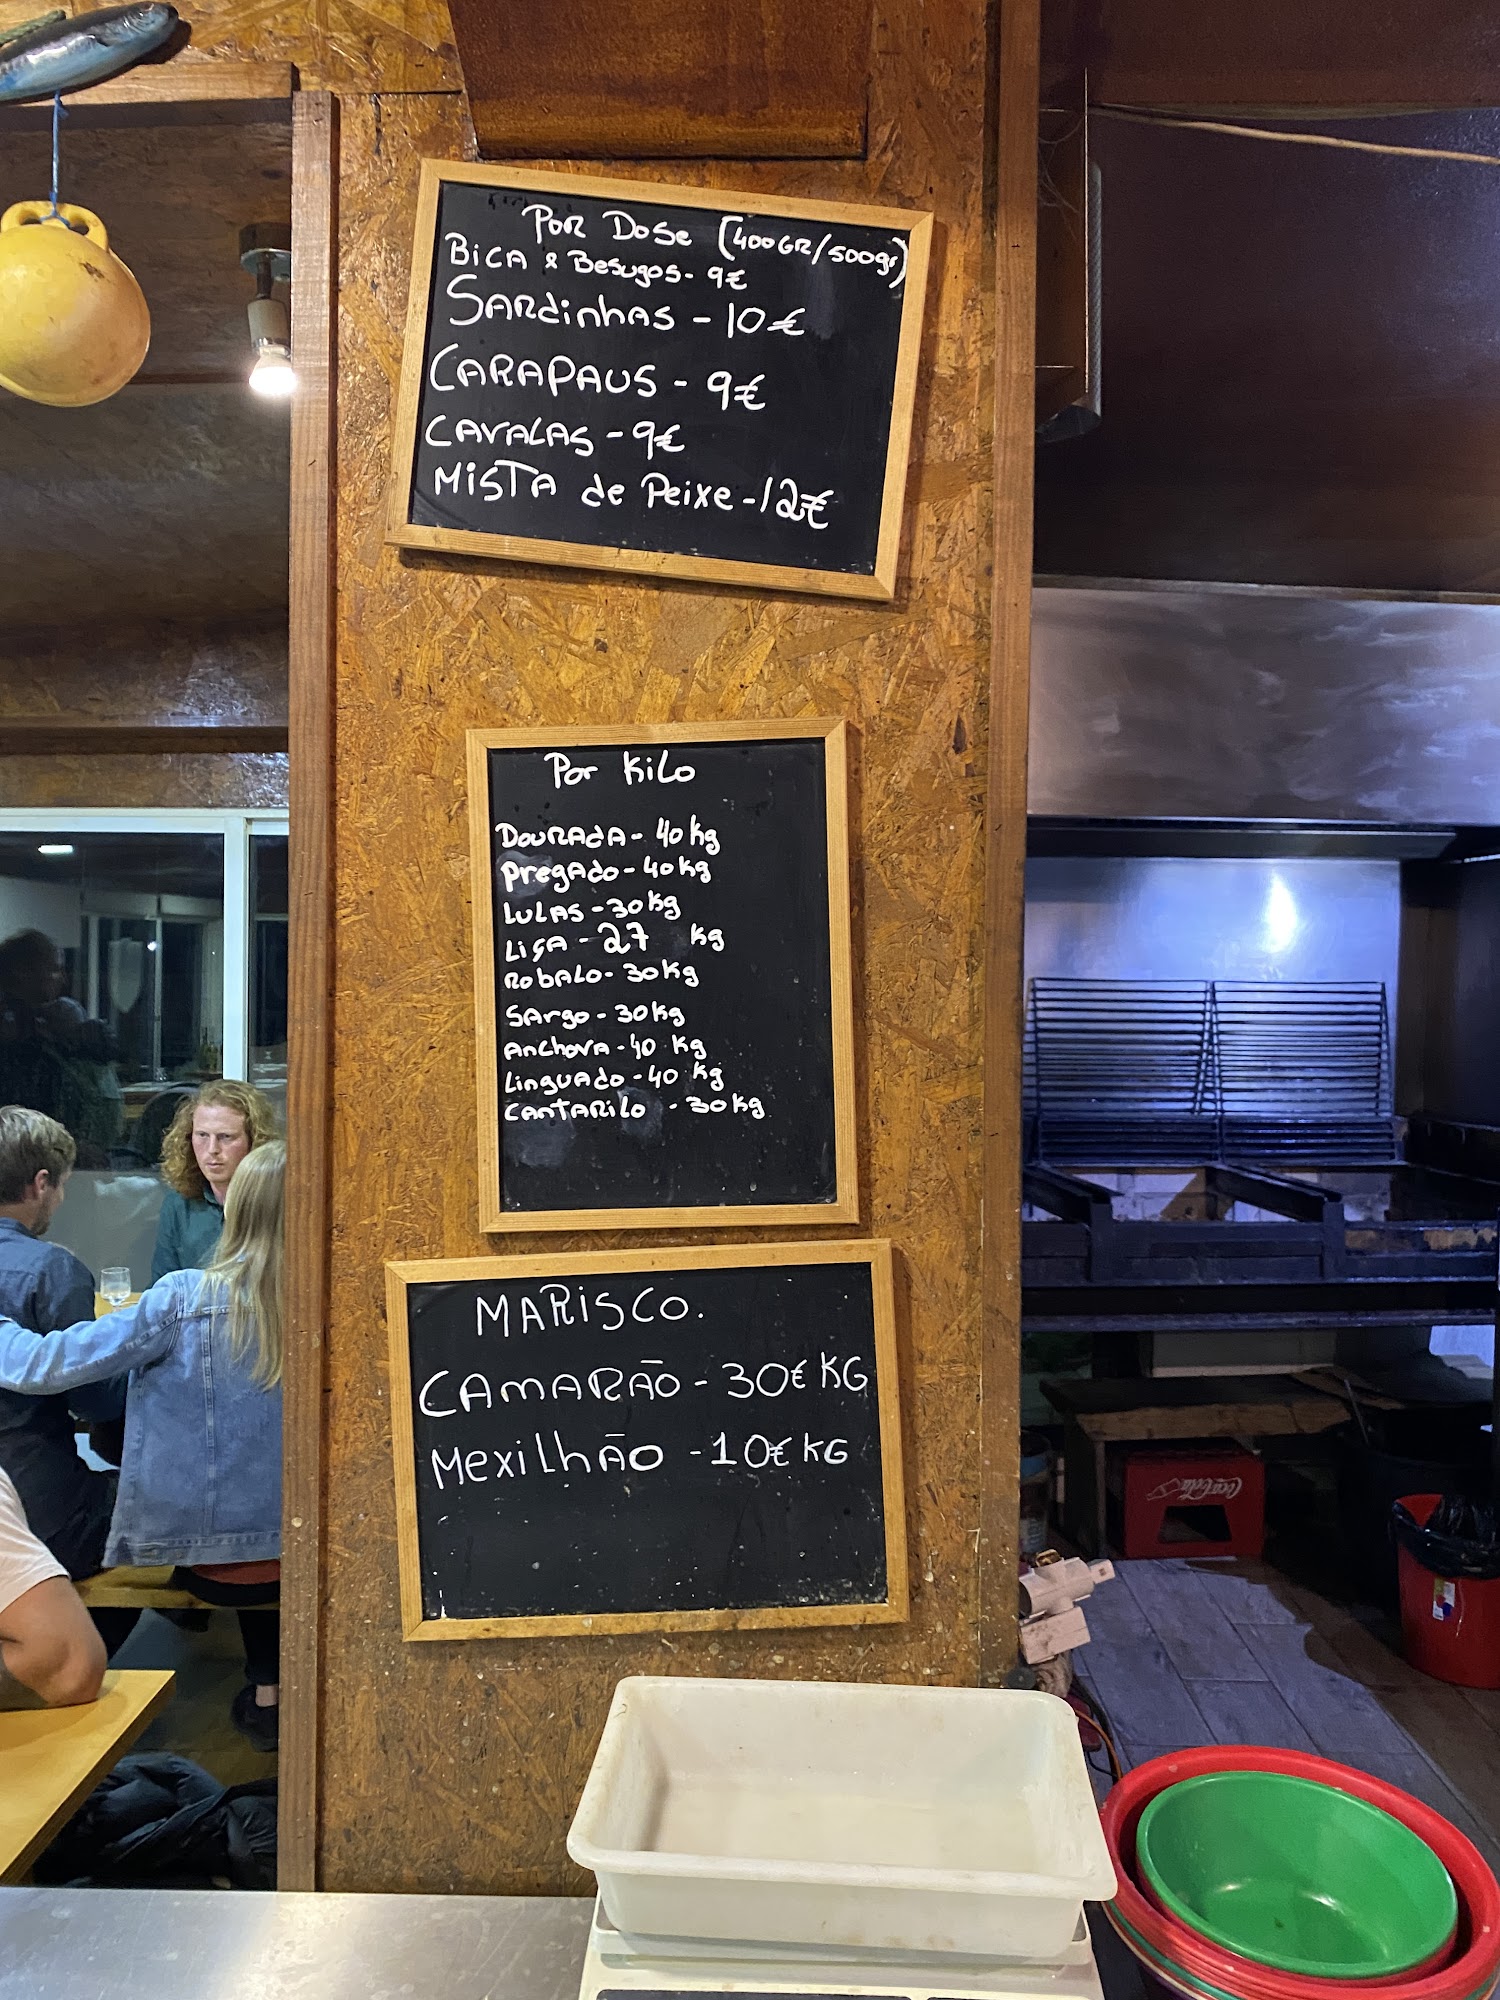 Por Dose (400GR/500gr)
Bica & Besugos - 9€
Sardinhas - 10€
CARAPAUS - 9€
CAVALAS - 9€
MISTA de Peixe - 12€
Por Kilo
DOURADA - 40 kg
Pregado - 40 kg
LULAS - 30 kg
LiçA - 27 kg
RobALO - 30 kg
SArgo - 30 kg
Anchova - 40 kg
Linguado - 40 kg
CANTARiLo - 30 kg
MARISCO.
CAMARÃO - 30€ KG
MexilhÃo - 10€ KG
Coca-Cola